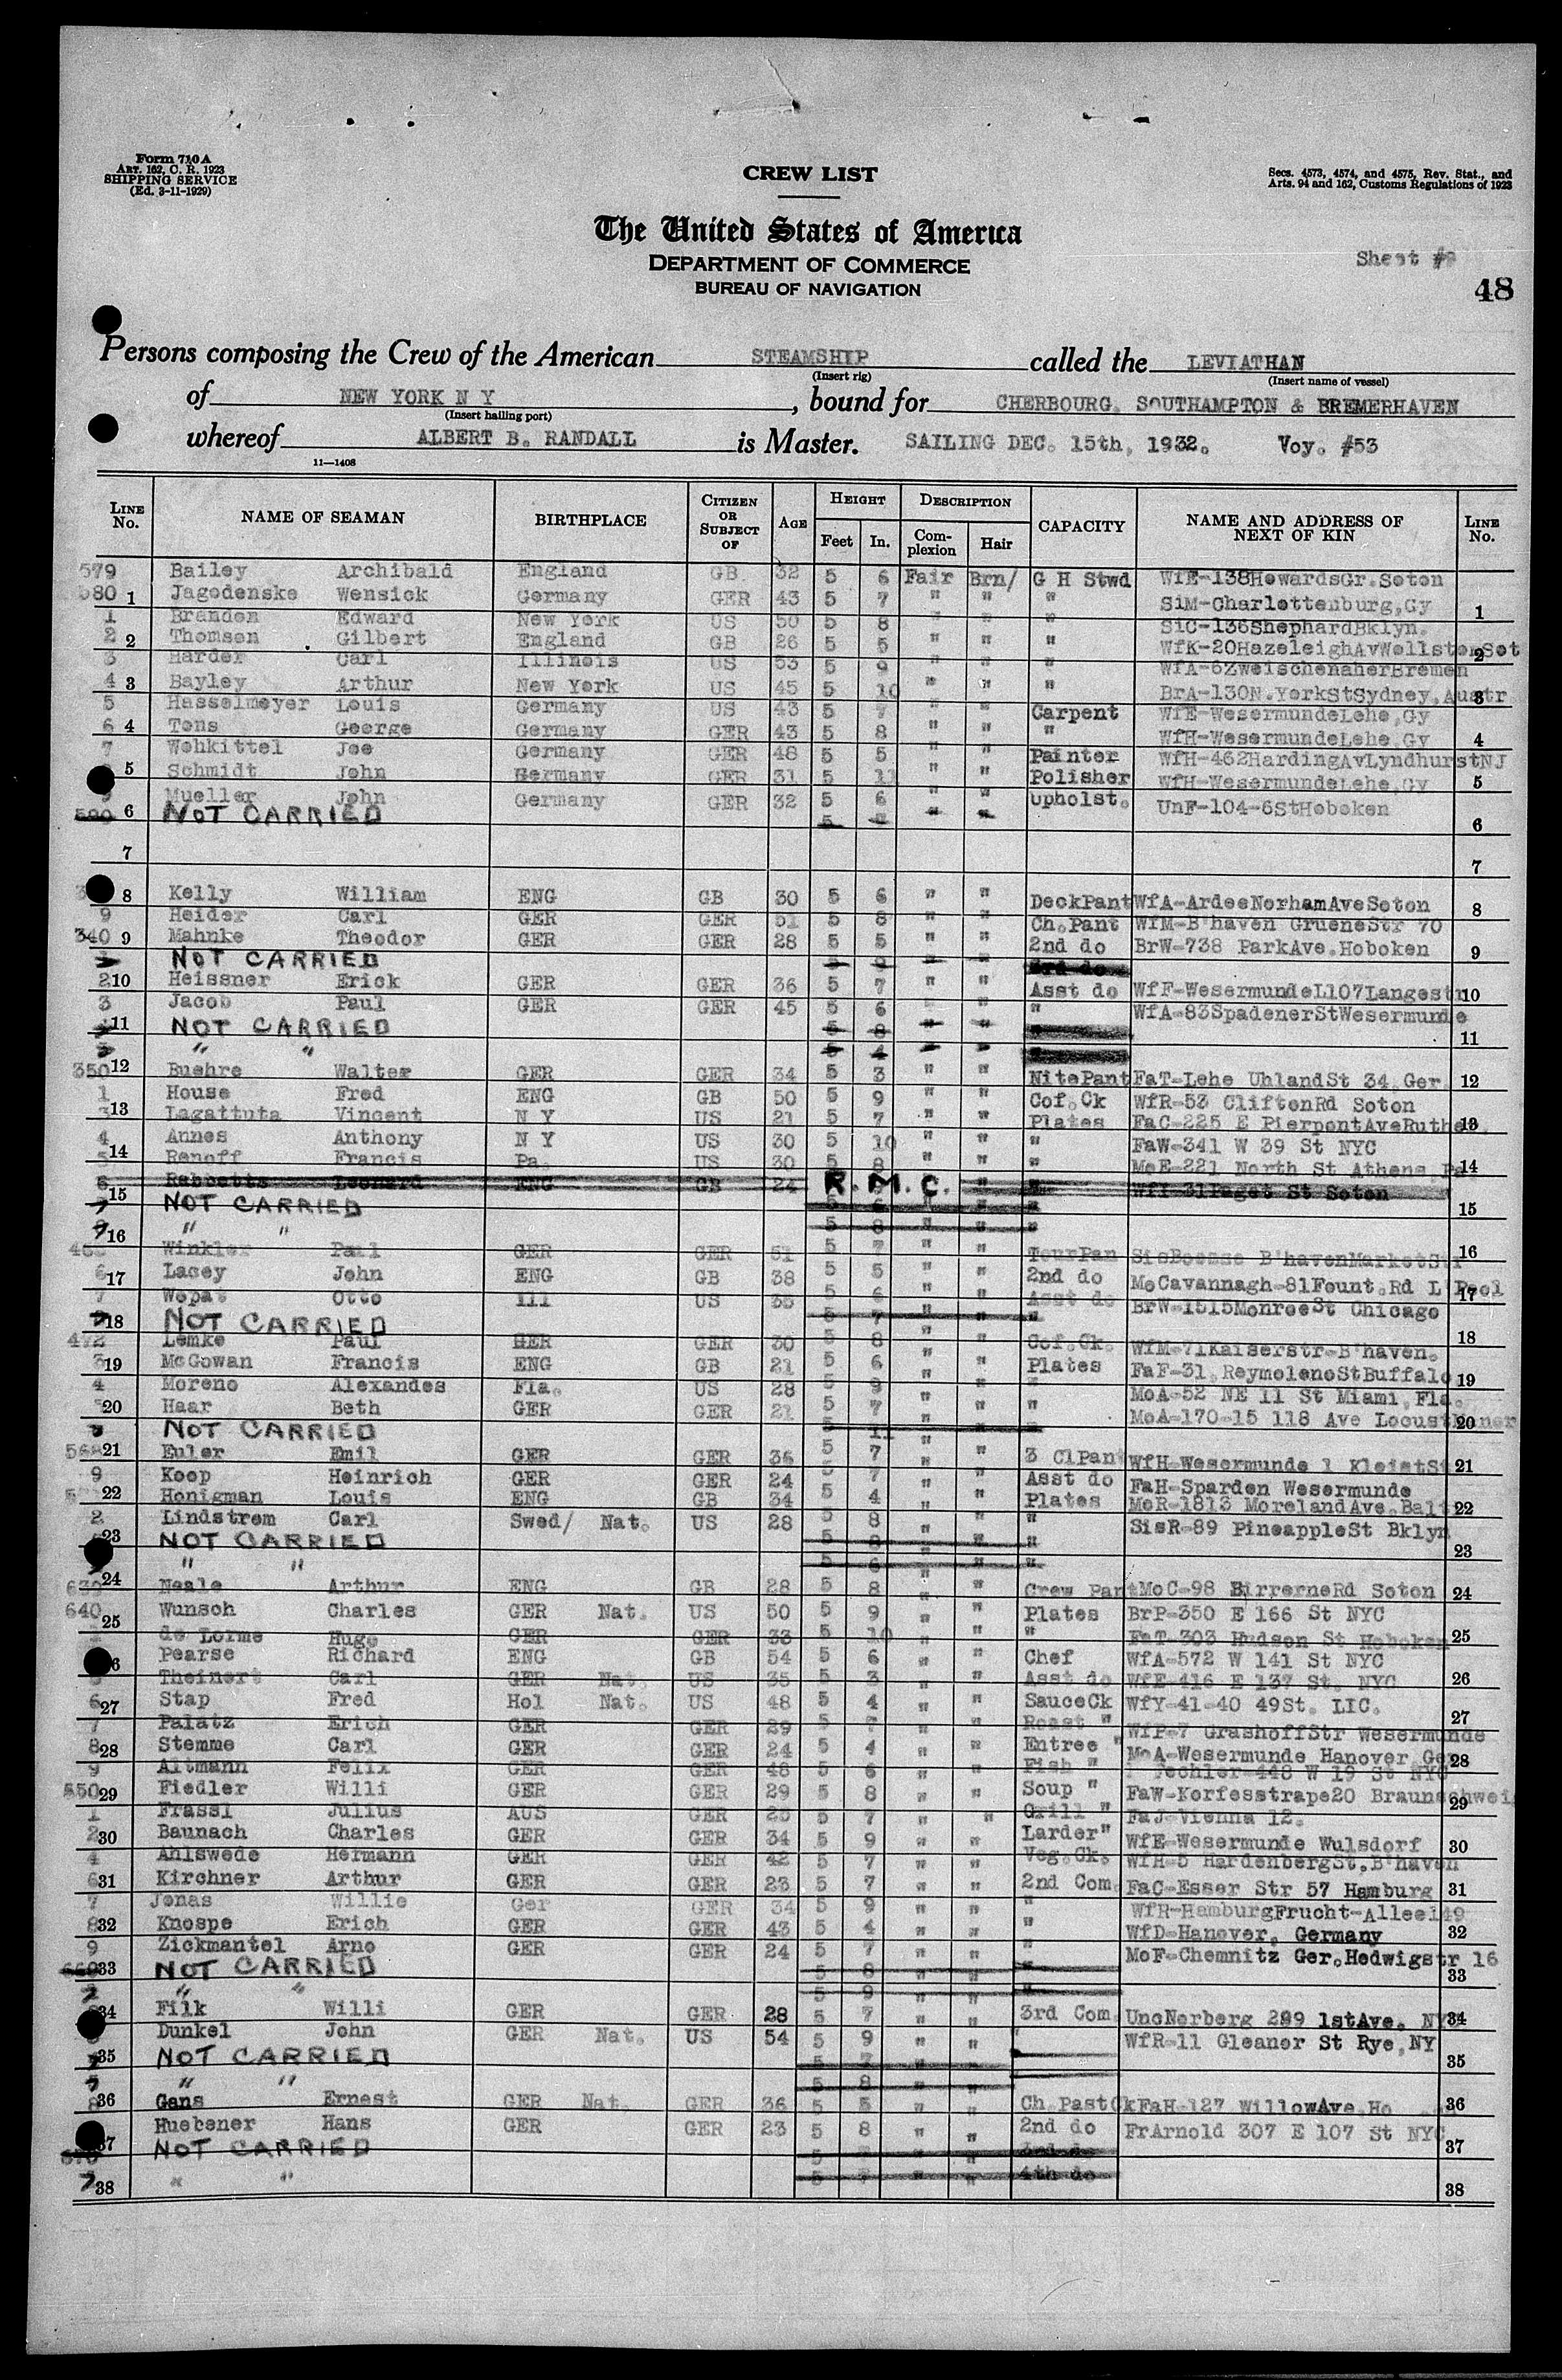 Form 710 A
ART. 162, C. R. 1923
SHIPPING SERVICE
(Ed. 3-11-1929)
CREW LIST
Secs. 4573, 4574, and 4575, Rev. Stat., and
Arts. 94 and 162, Customs Regulations of 1923
The United States of America
DEPARTMENT OF COMMERCE
BUREAU OF NAVIGATION
Sheet #
48
Persons composing the Crew of the American STEAMSHIP called the LEVIATHAN
(Insert rig) (Insert name of vessel)
of NEW YORK N Y, bound for CHERBOURG. SOUTHAMPTON & BREMERHAVEN
(Insert hailing port)
whereof ALBERT B. RANDALL is Master. SAILING DEC. 15th, 1932. Voy. #53
11—1408
LINE No. NAME OF SEAMAN BIRTHPLACE CITIZEN OR SUBJECT OF AGE HEIGHT Feet In. DESCRIPTION Complexion Hair CAPACITY NAME AND ADDRESS OF NEXT OF KIN LINE No.
579 Bailey Archibald England GB 32 5 6 Fair Brn/ G H Stwd WfE-138HowardsGr.Soton
580 1 Jagodenske Wensick Germany GER 43 5 7 " " " SiM-Charlottenburg,Gy 1
1 Brandon Edward New York US 50 5 8 " " " SiC-136ShephardBklyn.
2 2 Thomson Gilbert England GB 26 5 5 " " " WfK-20HazeleighAvWollstonSot 2
3 Harder Carl Illinois US 53 5 9 " " " WfA-6ZweischenaherBremen
4 3 Bayley Arthur New York US 45 5 10 " " " BrA-130N.YorkStSydney,Austr 3
5 Hasselmeyer Louis Germany US 43 5 7 " " Carpent WfE-WesermundeLehe,Gy
6 4 Tons George Germany GER 43 5 8 " " " WfH-WesermundeLehe,Gy 4
7 Wohkittel Joe Germany GER 48 5 5 " " Painter WfH-462HardingAvLyndhurstNJ
5 Schmidt John Germany GER 31 5 11 " " Polisher WfH-WesermundeLehe,Gy 5
9 Mueller John Germany GER 32 5 6 " " Upholst. UnF-104-6StHoboken
590 6 NOT CARRIED 5 " " 6
7 7
8 Kelly William ENG GB 30 5 6 " " DeckPant WfA-ArdeeNorhamAveSoton 8
9 Heider Carl GER GER 51 5 8 " " Ch.Pant WfM-B'haven GrueneStr 70
340 9 Mahnke Theodor GER GER 28 5 5 " " 2nd do BrW-738 ParkAve.Hoboken 9
NOT CARRIED 5 9 " " 3rd do
2 10 Heissner Erick GER GER 36 5 7 " " Asst do WfF-WesermundeL107Langestr 10
3 Jacob Paul GER GER 45 5 6 " " WfA-83SpadenerStWesermunde
11 NOT CARRIED 5 8 " " 11
" " 5 4 " "
350 12 Buehre Walter GER GER 34 5 3 " " NitePant FaT-Lehe UhlandSt 34 Ger 12
1 House Fred ENG GB 50 5 9 " " Cof.Ck WfR-53 CliftonRd Soton
13 Lagattuta Vincent N Y US 21 5 7 " " Plates FaC-225 E PierpontAveRuthe 13
4 Annes Anthony N Y US 30 5 10 " " " FaW-341 W 39 St NYC
14 Renoff Francis Pa. US 30 5 8 " " " MoE-221 North St Athens,Pa 14
6 15 Rabbetts Leonard ENG GB 24 R.M.C. " " WfI-31Paget St Soton 15
NOT CARRIED 5 6 " " "
16 " " 5 8 " " " 16
Winkler Paul GER GER 51 5 7 " " TourPan B'havenMarketStr
6 17 Lacey John ENG GB 38 5 5 " " 2nd do MoCavannagh-81Fount.Rd L'Pool 17
7 Wopat Otto Ill US 35 5 6 " " Asst do BrW-1515MonroeSt Chicago
18 NOT CARRIED 5 7 " " " 18
472 Lemke Paul GER GER 30 5 8 " " Cof.Ck. WfM-71Kaiserstr-B'haven.
3 19 McGowan Francis ENG GB 21 5 6 " " Plates FaF-31.ReymolenoStBuffalo 19
4 Moreno Alexandes Fla. US 28 5 9 " " " MoA-52 NE 11 St Miami,Fla.
20 Haar Beth GER GER 21 5 7 " " " MoA-170-15 118 Ave 20
NOT CARRIED 5 11 " "
568 21 Euler Emil GER GER 36 5 7 " " 3 ClPant WfH-Wesermunde 1 KleistSt 21
9 Koop Heinrich GER GER 24 5 7 " " Asst do FaH-Sparden Wesermunde
22 Honigman Louis ENG GB 34 5 4 " " Plates MoR-1813 MorelandAve.Balt 22
2 Lindstrom Carl Swed/ Nat. US 28 5 8 " " " SisR-89 PineappleSt Bklyn
23 NOT CARRIED 5 8 " " " 23
" " 5 6 " " "
24 Neale Arthur ENG GB 28 5 8 " " Crew Pant MoC-98 BirrerneRd Soton 24
640 25 Wunsch Charles GER Nat. US 50 5 9 " " Plates BrP-350 E 166 St NYC
1 de Lorme Hugo GER GER 33 5 10 " " " FaT-303 Hudson St Hoboken 25
6 Pearse Richard ENG GB 54 5 6 " " Chef WfA-572 W 141 St NYC
Theinert Carl GER Nat. US 35 5 3 " " Asst do WfE-416 E 137 St. NYC 26
6 27 Stap Fred Hol Nat. US 48 5 4 " " SauceCk WfY-41-40 49St. LIC.
7 Palatz Erich GER GER 29 5 7 " " Roast " WfP-7 GrashoffStr Wesermunde 27
8 28 Stemme Carl GER GER 24 5 4 " " Entree " MoA-Wesermunde Hanover Ger 28
9 Altmann Felix GER GER 48 5 6 " " Fish " Fechler-448 W 19 St NYC
650 29 Fiedler Willi GER GER 29 5 8 " " Soup " FaW-Korfesstrape20 Braunschwei 29
1 Frassl Julius AUS GER 25 5 7 " " Grill " FaJ-Vienna 12.
2 30 Baunach Charles GER GER 34 5 9 " " Larder" WfE-Wesermunde Wulsdorf 30
4 Ahlswede Hermann GER GER 42 5 7 " " Veg.Ck. WfH-5 HardenbergSt.B'haven
6 31 Kirchner Arthur GER GER 23 5 7 " " 2nd Com. FaC-Esser Str 57 Hamburg 31
7 Jonas Willie Ger GER 34 5 9 " " " WfR-HamburgFrucht-Allee149
8 32 Knospe Erich GER GER 43 5 4 " " " WfD-Hanover, Germany 32
9 Zickmantel Arno GER GER 24 5 7 " " " MoF-Chemnitz Ger.Hedwigstr 16
660 33 NOT CARRIED 5 8 " " " 33
" " 5 9 " " "
34 Filk Willi GER GER 28 5 7 " " 3rd Com. UncNerberg 299 1stAve. NYC 34
Dunkel John GER Nat. US 54 5 9 " " WfR-11 Gleaner St Rye,NY
35 NOT CARRIED 5 7 " " 35
" " 5 8 " "
8 36 Gans Ernest GER Nat. GER 36 5 5 " " Ch.PastCk FaH-127 WillowAve.Ho 36
37 Huebener Hans GER GER 23 5 8 " " 2nd do FrArnold 307 E 107 St NYC 37
NOT CARRIED 5 " " 3rd do
38 " " 5 7 " " 4th do 38